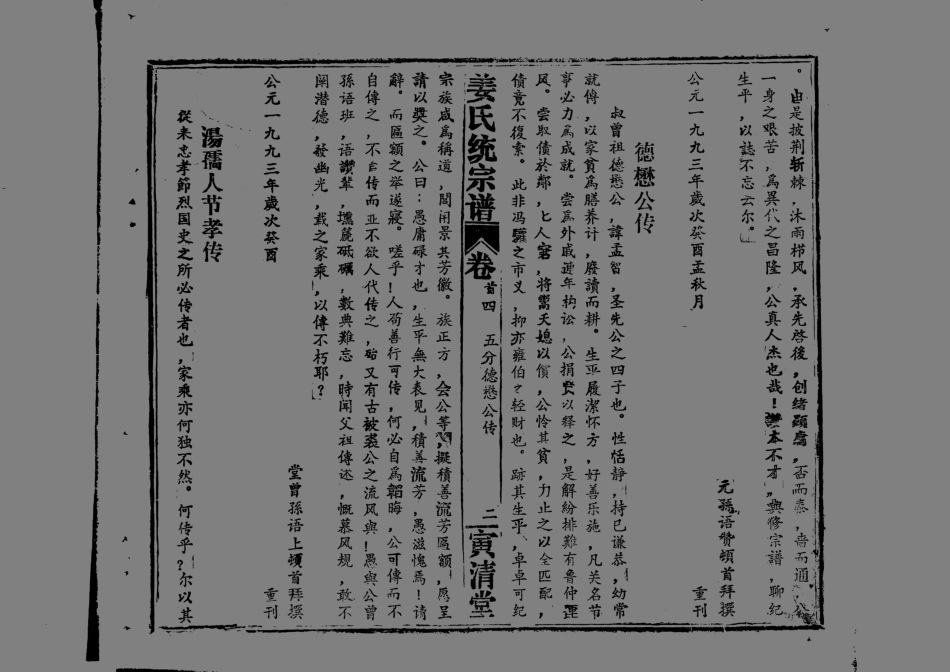 。由是披荆斩棘，沐雨栉风，承先啓後，创绪颢庸，否而泰，啬而通。
一身之艰苦，爲異代之昌隆，公真人杰也哉！讃本不才，與修宗譜，聊纪
生平，以誌不忘云尔。
元孫语赞頓首拜撰
公元一九九三年歲次癸酉孟秋月
重刊
德懋公传
叔曾祖德懋公，諱孟智，圣先公之四子也。性恬静，持己谦恭，幼常
就傅，以家貧爲膳养计，廢讀而耕。生平履潔怀方，好善乐施，凡关名节
事必力爲成就。尝爲外戚連年构讼，公捐
以释之，是解纷排難有鲁仲連
风。尝取债於鄰，七人窘，将鬻天媳以償，公怜其貧，力止之以全匹配，
债竟不復索。此非冯驩之市义，抑亦雍伯之轻财也。跡其生平，卓卓可纪
姜氏统宗谱 卷首四 五分德懋公传 二 寅清堂
宗族咸爲稱道，閭闬景其芳徽。族正方，会公等，擬積善流芳匾额，愿呈
請以奬之。公曰：愚庸碌才也，生平無大表见，積善流芳，愚滋愧焉！请
辭。而匾额之举遂寢。嗟乎！人苟善行可传，何必自爲韜晦，公可傳而不
自傳之，不自传而亚不欲人代传之，殆又有古被裘公之流风與！愚與公曾
孫语班，语讚輩，撝麓砥礪，數典難忘，時闻父祖傳述，慨慕风规，敢不
阐潜德，發幽光，载之家乘，以傳不朽耶？
堂曾孫语上頓首拜撰
公元一九九三年歲次癸酉
重刊
湯孺人节孝传
從来忠孝節烈国史之所必传者也，家乘亦何独不然。何传乎？尔以其